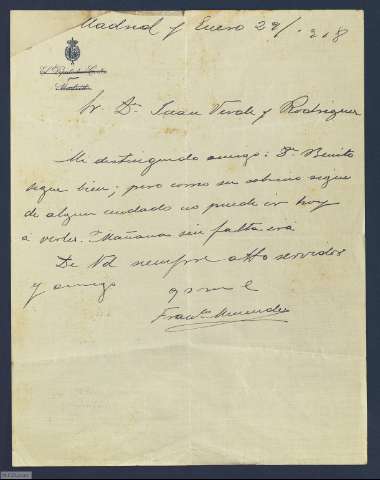 Madrid y Enero 29/. 918
El Diputado a Cortes
Madrid
Sr. Dn. Juan Verde y Rodriguez
Mi distinguido amigo: Dn. Benito
sigue bien; pero como su sobrino sigue
de algun cuidado no puede ir hoy
a verles. Mañana sin falta irá
De Vd siempre atto servidor
y amigo
q s m e
Franco. Menendez